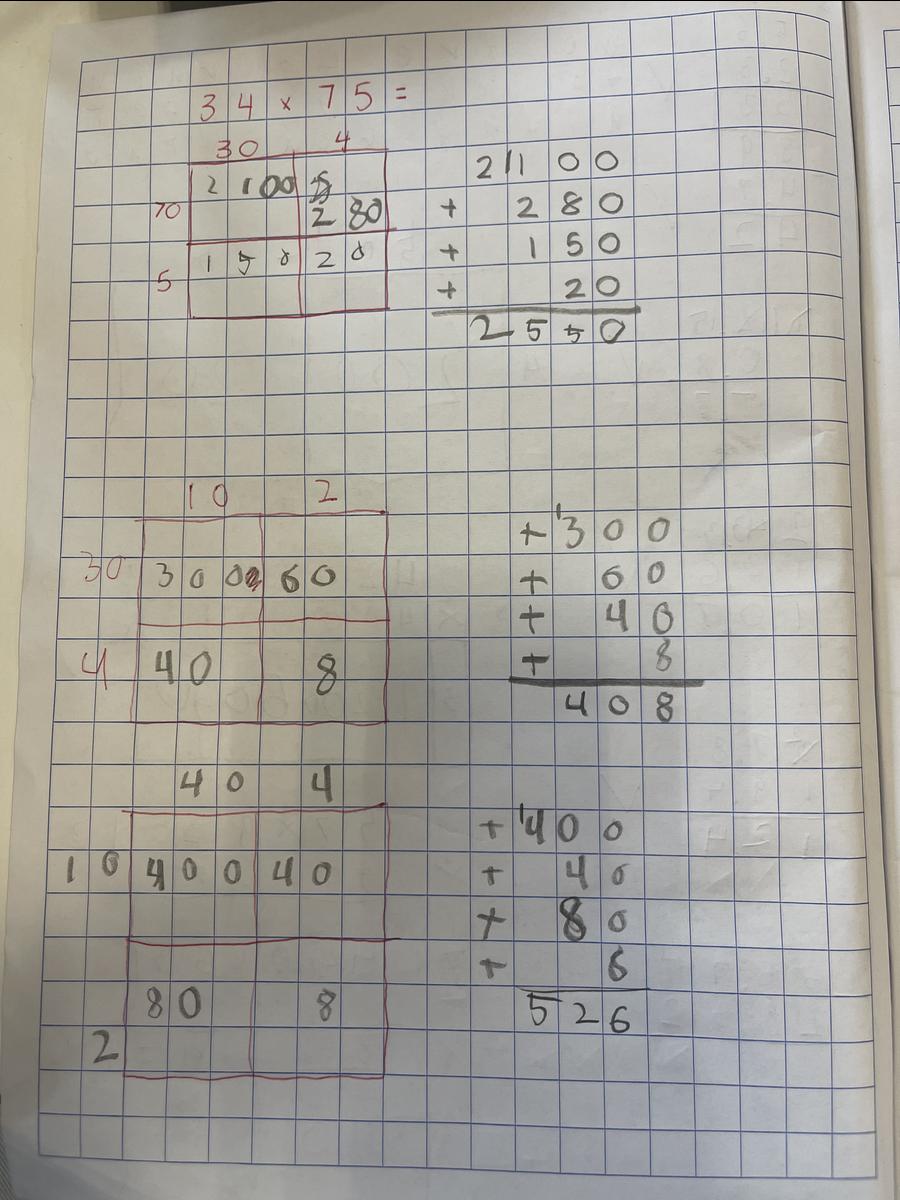 34 × 75 =
30 4
70 2100 280
5 150 20
2100
+ 280
+ 150
+ 20
2550
10 2
30 300 60
4 40 8
+ 1300
+ 60
+ 40
+ 8
408
40 4
10 400 40
2 80 8
+ 1400
+ 40
+ 80
+ 6
526